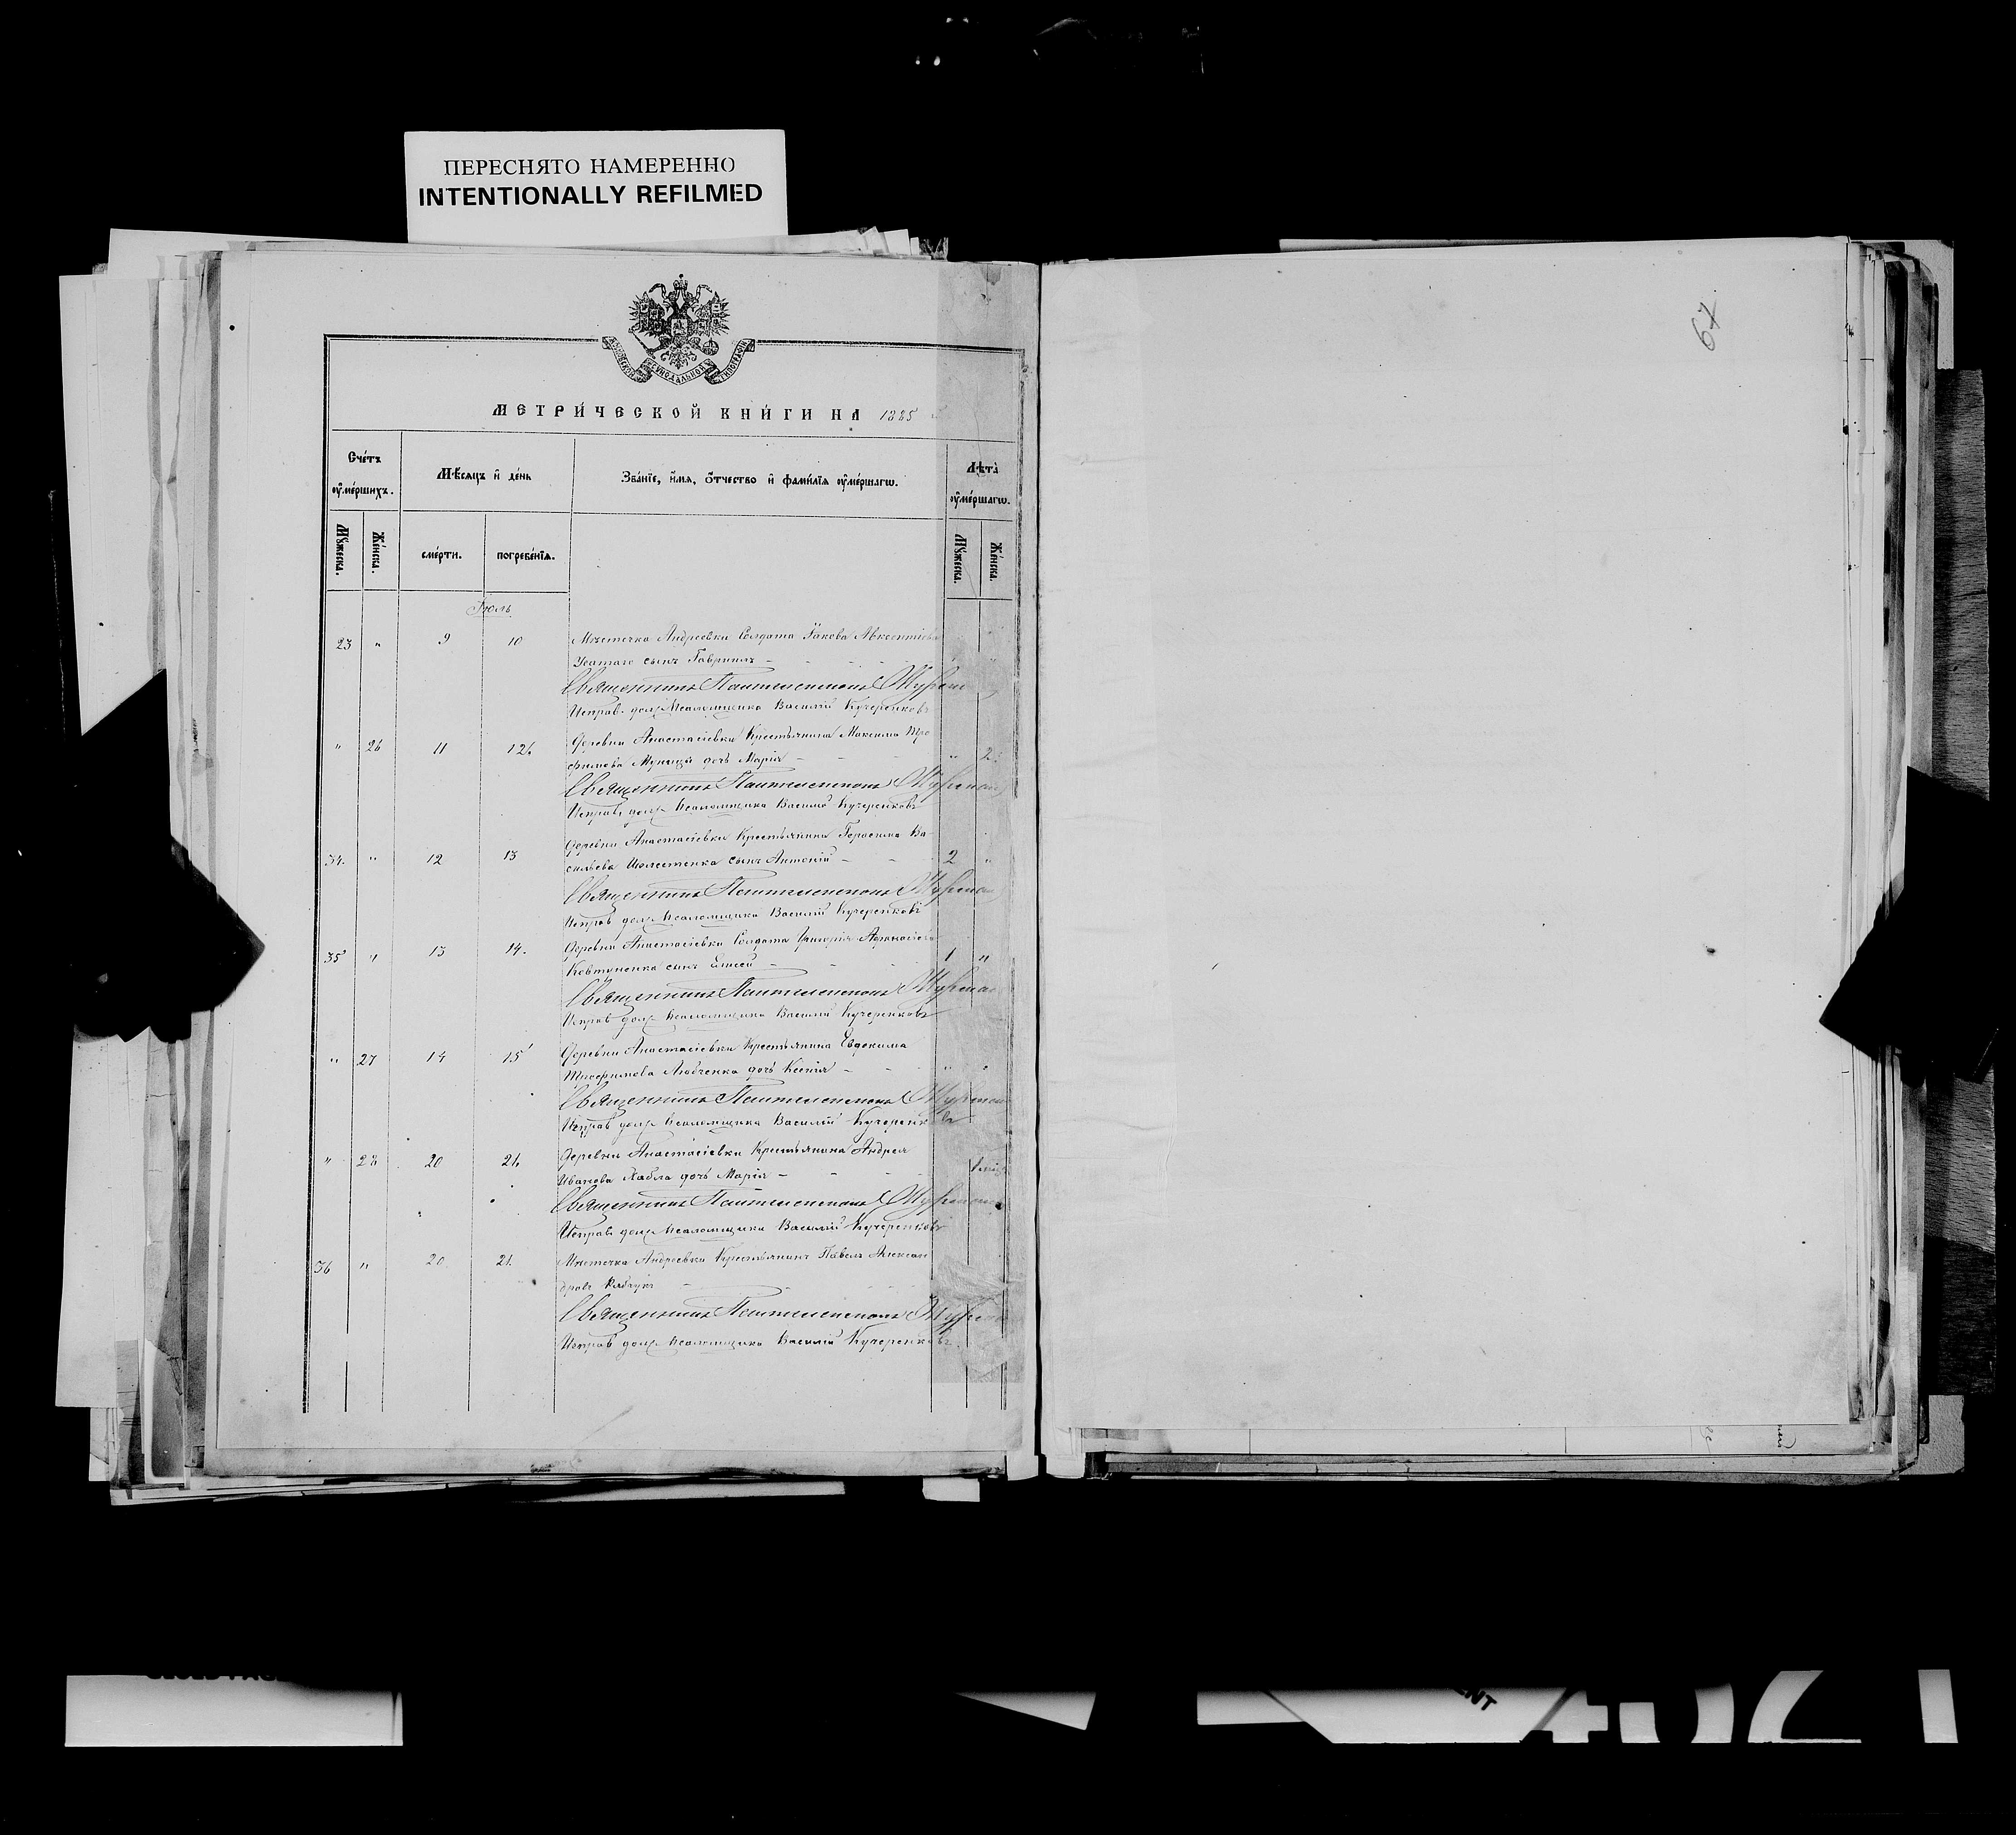 ПЕРЕСНЯТО НАМЕРЕННО
INTENTIONALLY REFILMED
67
МОСКОВСКОЙ СѴНОДАЛЬНОЙ ТИПОГРАФІИ
МЕТРИ́ЧЕСКОЙ КНИ́ГИ НА 1885
Сче́тъ ᲂу҆ме́ршихъ.
Мѣ́сяцъ и҆ де́нь
Зва́нїе, и҆́мя, ѻ҆́тчество и҆ фами́лїя ᲂу҆ме́ршагѡ.
Лѣ́та ᲂу҆ме́ршагѡ.
Мꙋ́жеска.
Же́нска.
сме́рти.
погребе́нїя.
Мꙋ́жеска.
Же́нска.
Іюль
23 " 9 10 Мѣстечка Андреевки Солдата Іакова Авксентіева
Усатаго сынъ Гавріилъ
Священникъ Пантелеимонъ
Исправ. долж. Псаломщика Василій Кучеренковъ
" 26 11 12. Деревни Анастасіевки Крестьянина Максима Тро
фимова дочь Марія " 2
Священникъ Пантелеимонъ
Исправ. долж. Псаломщика Василій Кучеренковъ
Деревни Анастасіевки Крестьянина Герасима Ва
34. " 12 13 сильева сынъ Антоній 2 "
Священникъ Пантелеимонъ
Исправ. долж. Псаломщика Василій Кучеренковъ
35 " 13 14. Деревни Анастасіевки Солдата Григорія Афанасіева
Ковтуненка сынъ Елисей 1 "
Священникъ Пантелеимонъ
Исправ. долж. Псаломщика Василій Кучеренковъ
" 27 14 15 Деревни Анастасіевки Крестьянина Евдокима
Тимофимова Любченка дочь Ксенія "
Священникъ Пантелеимонъ
Исправ. долж. Псаломщика Василій Кучеренковъ
" 28 20 21. Деревни Анастасіевки Крестьянина Андрея
Иванова дочь Марія 1
Священникъ Пантелеимонъ
Исправ. долж. Псаломщика Василій Кучеренковъ
36 " 20 21. Мѣстечка Андреевки Крестьянинъ Павелъ Алексан
дровъ
Священникъ Пантелеимонъ
Исправ. долж. Псаломщика Василій Кучеренковъ.